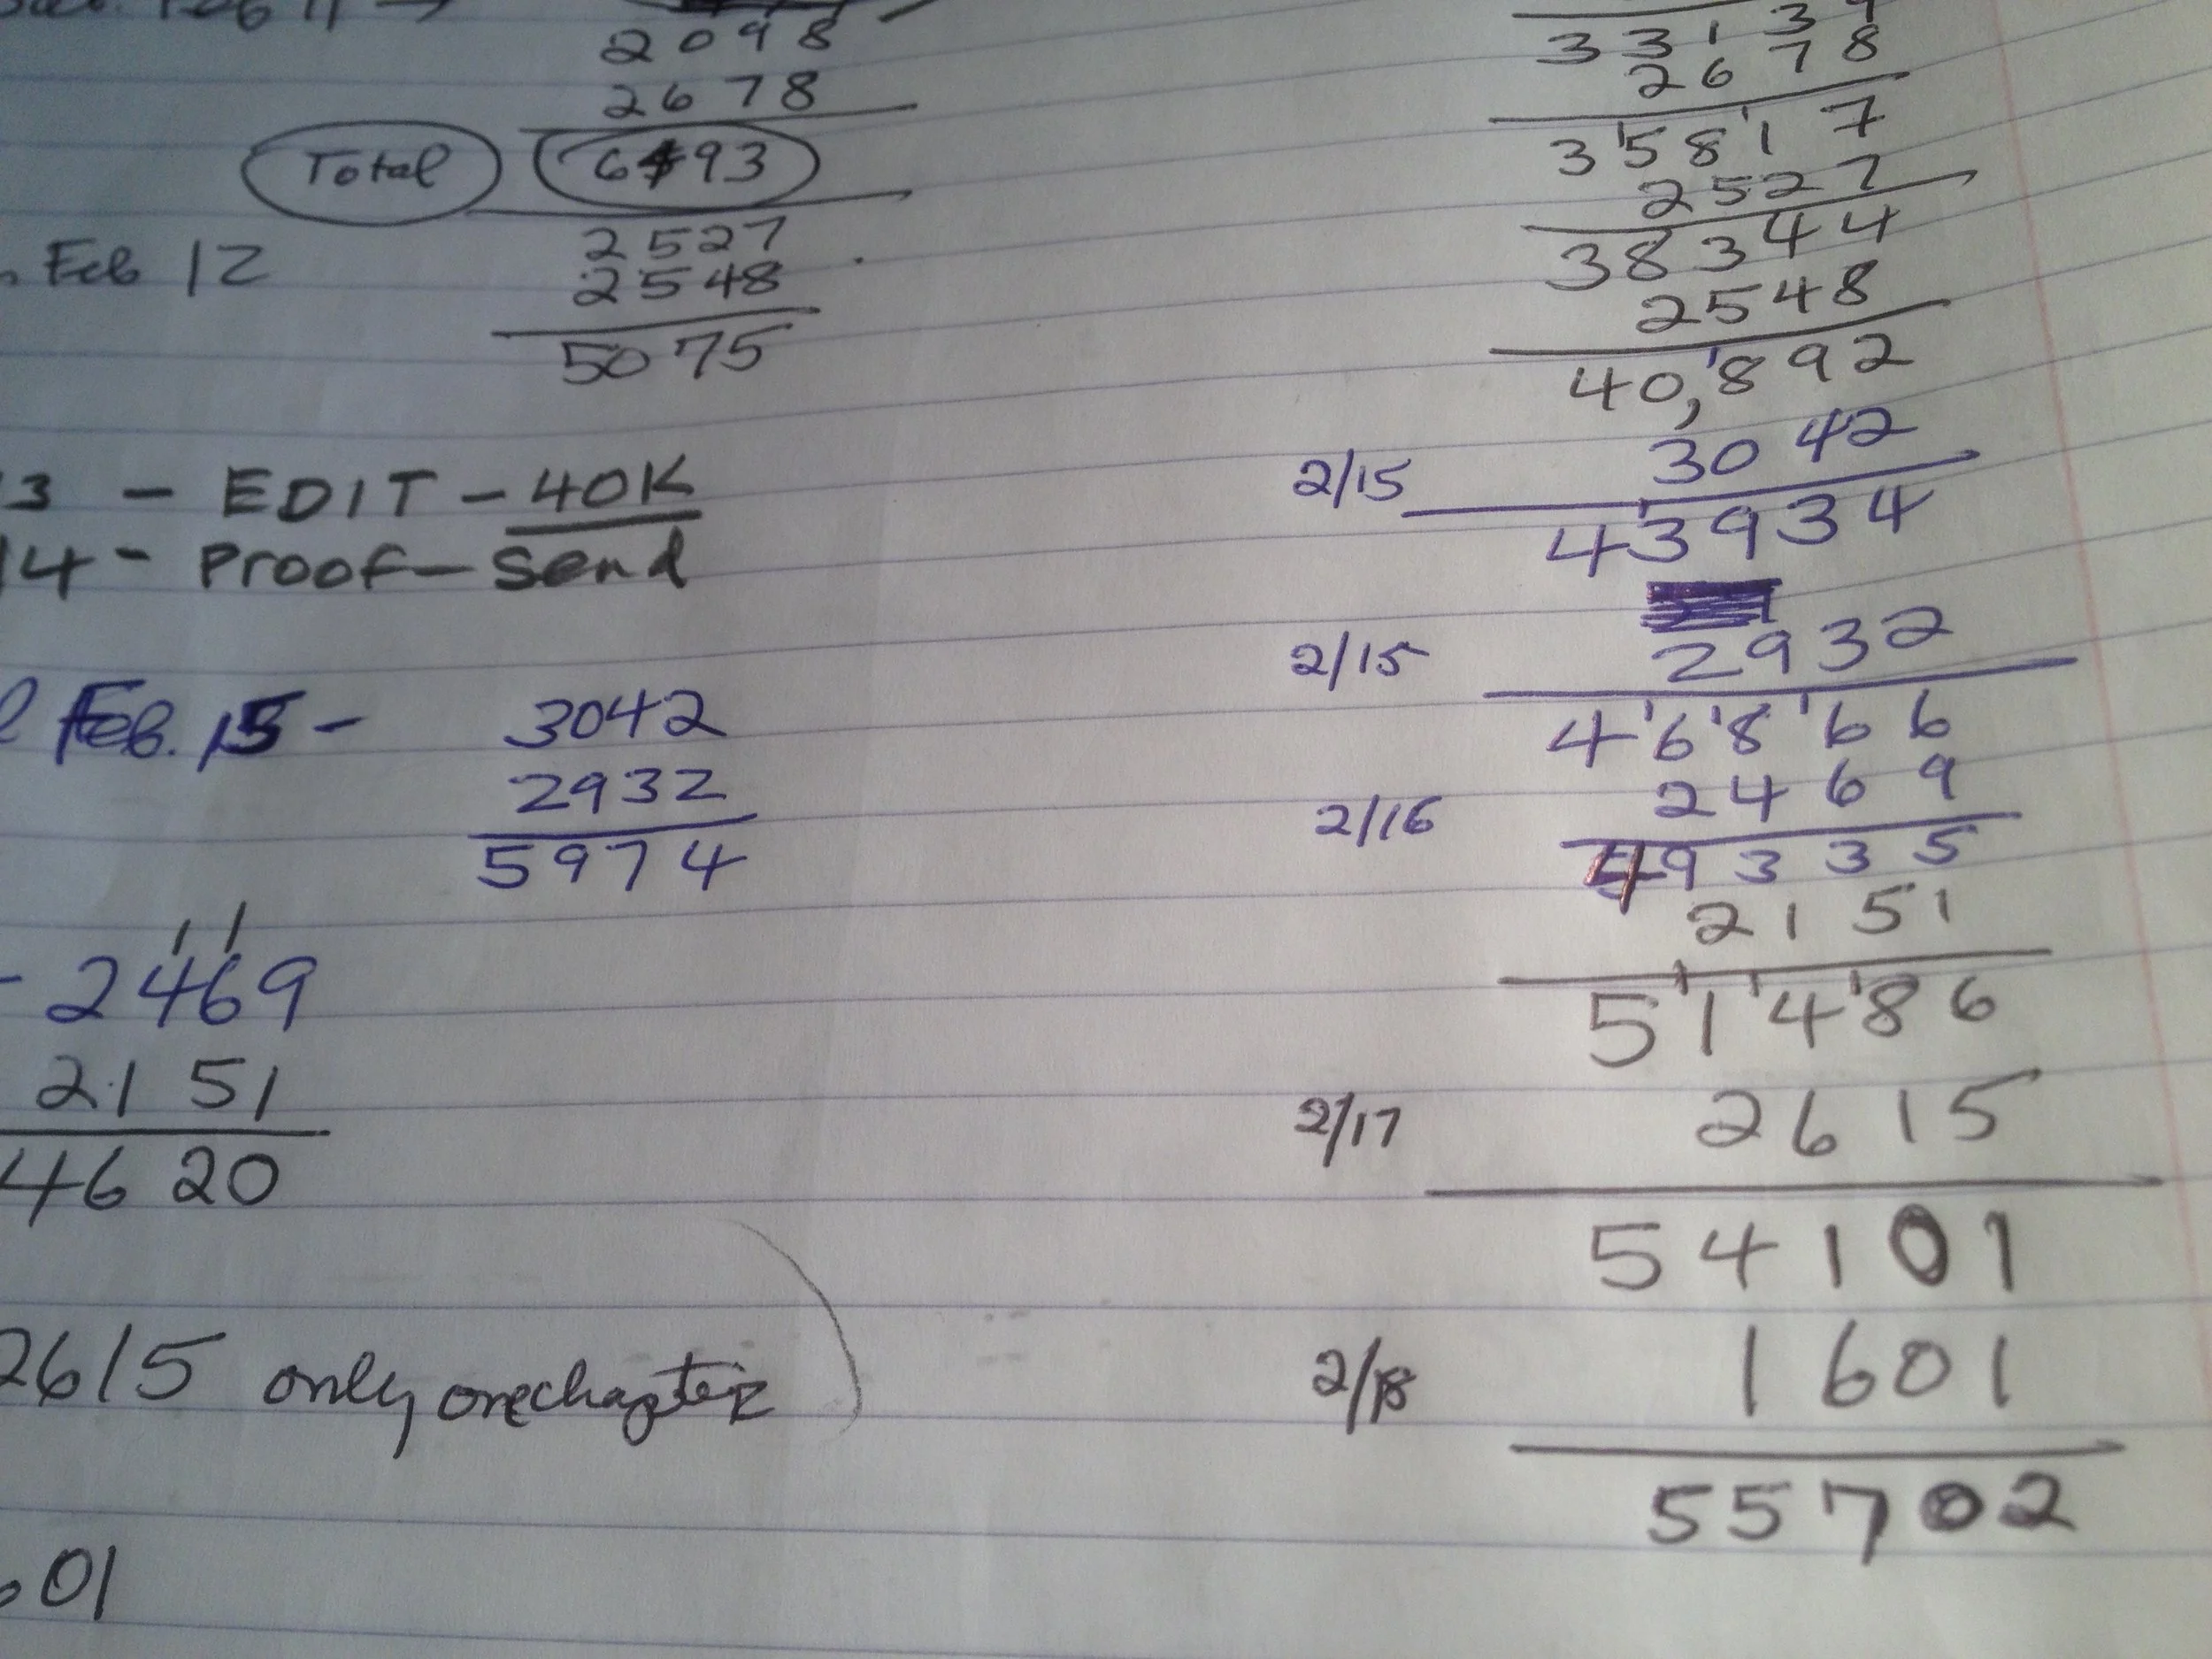 Feb 11 →
2098
2678
Total 6493
Feb 12
2527
2548
5075
3 - EDIT - 40K
14 - Proof - Send
Feb. 15 -
3042
2932
5974
1 1
- 2469
2151
4620
2615 only one chapter
01
33139
2678
35817
2527
38344
2548
40,892
2/15 3042
43934
2/15 2932
46866
2/16 2469
49335
2151
51486
2/17 2615
54101
2/18 1601
55702